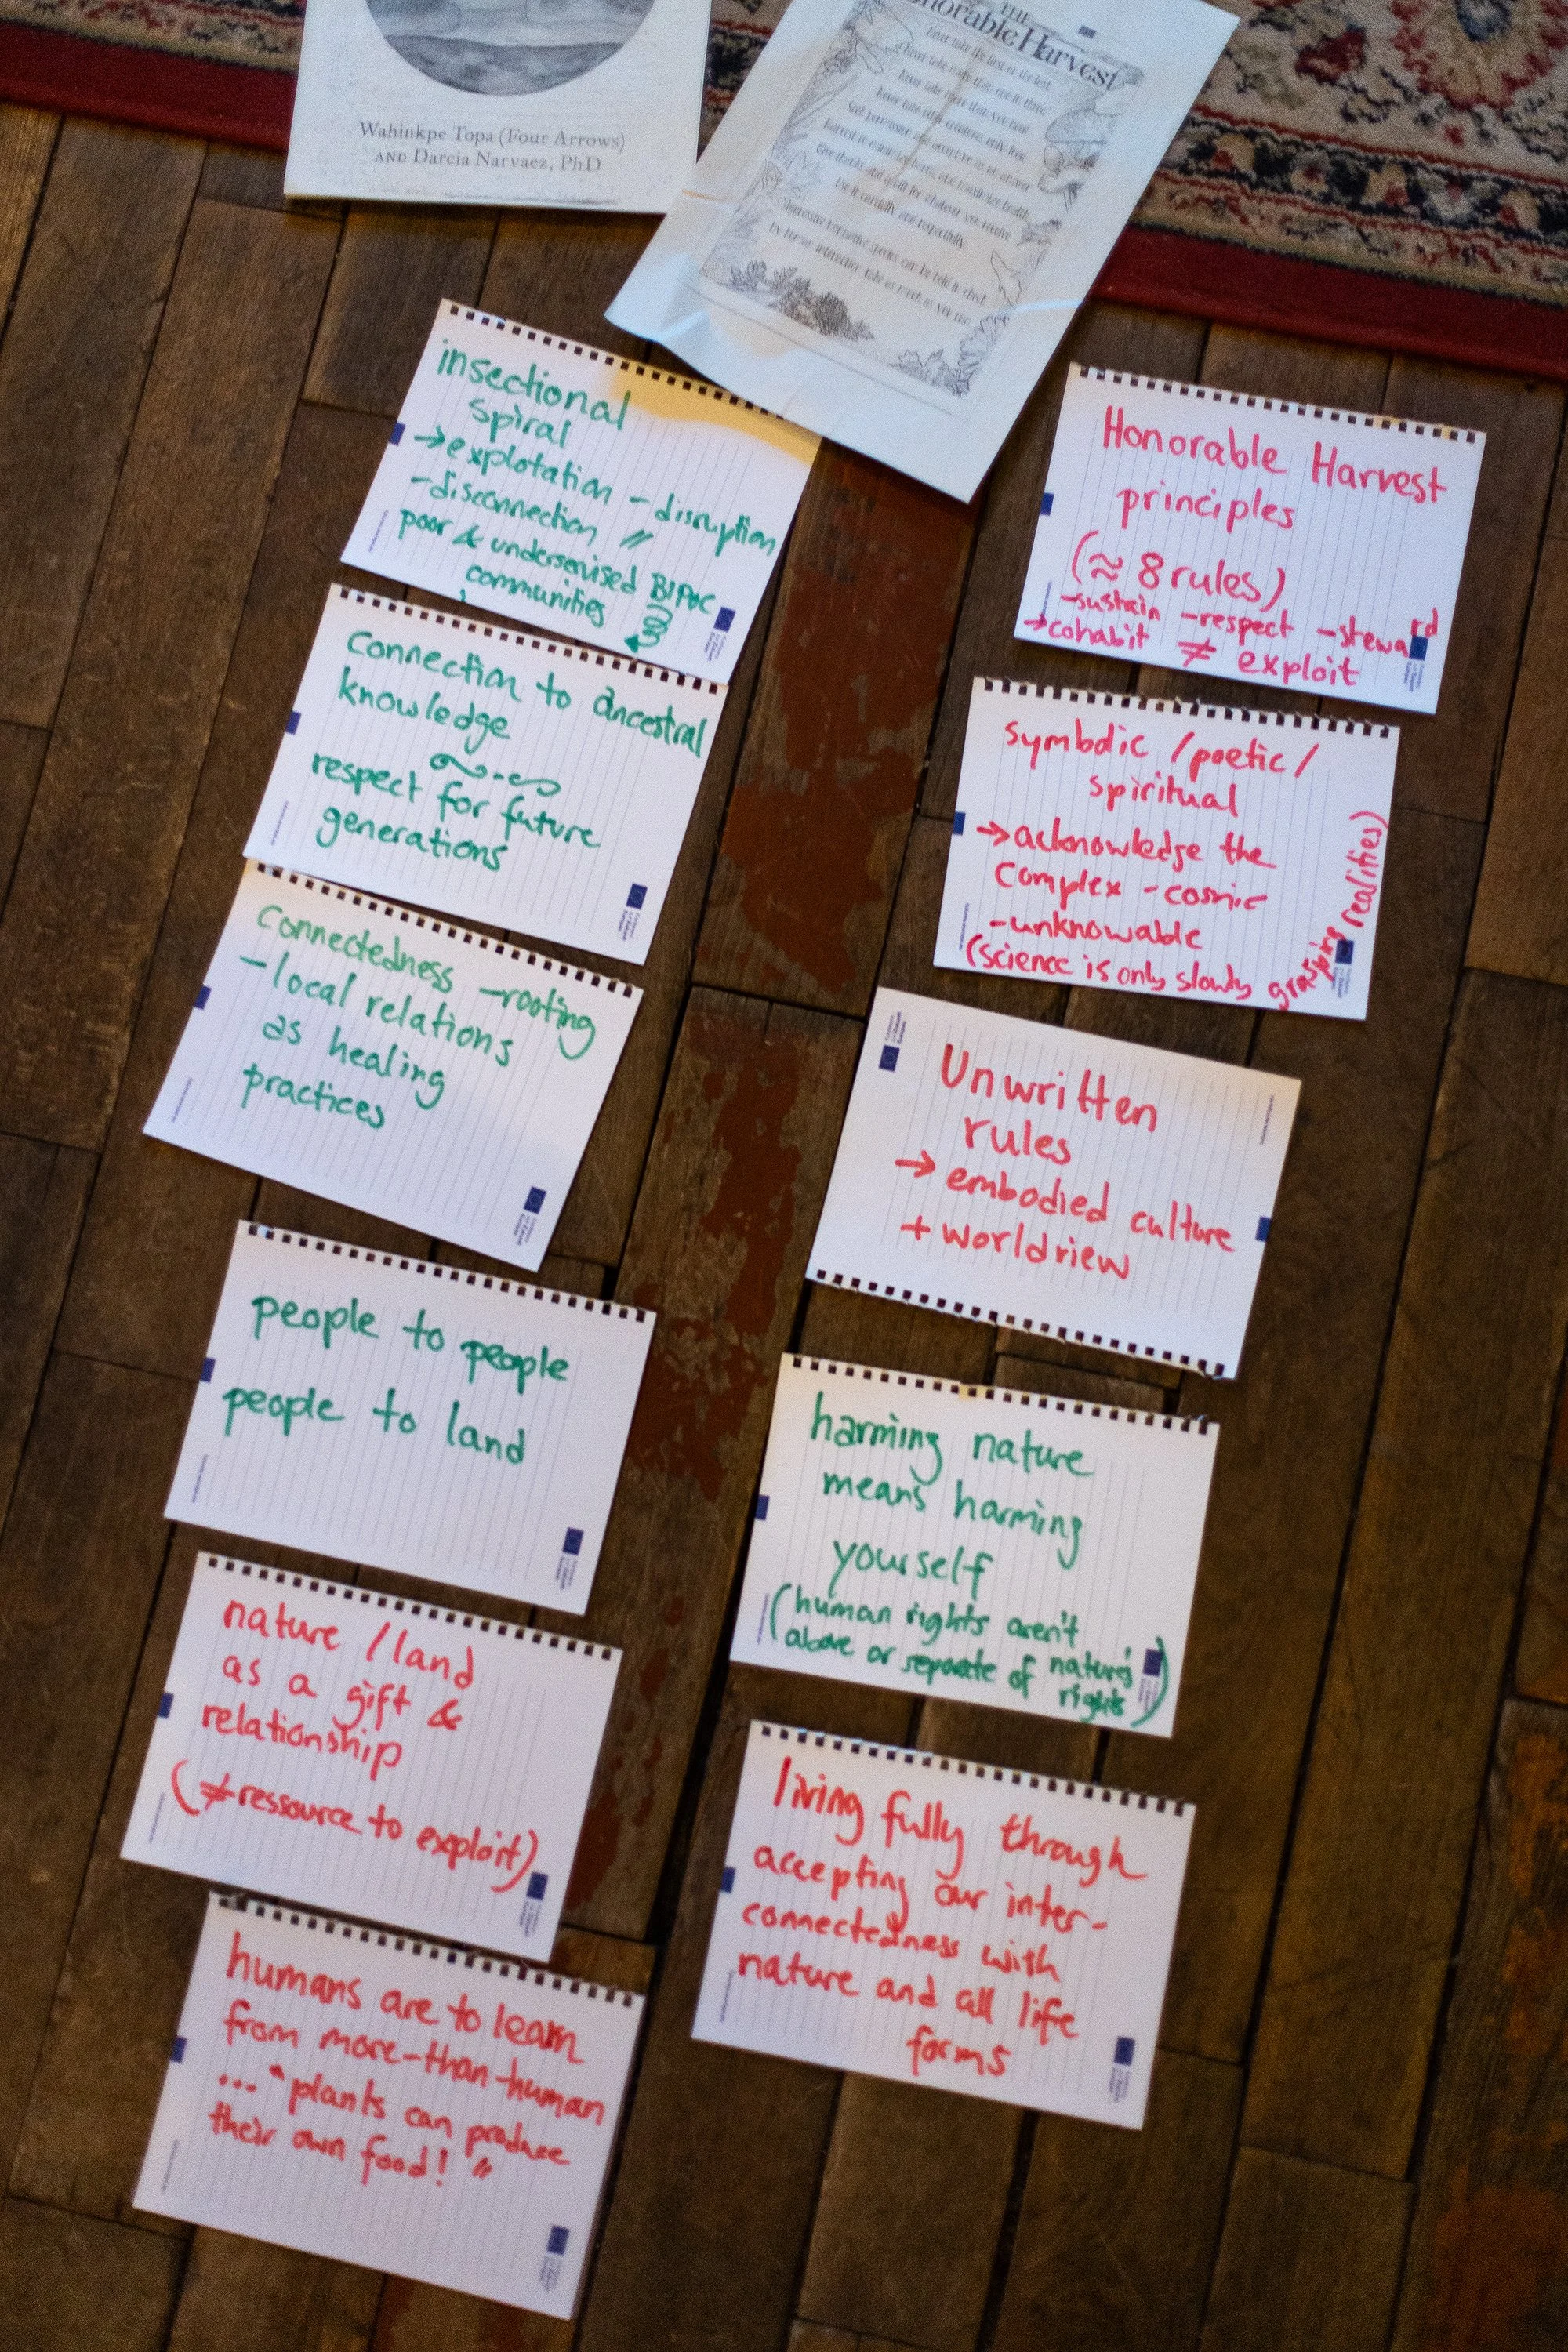 Wahinkpe Topa (Four Arrows)
AND Darcia Narvaez, PhD
THE
Honorable Harvest
Never take the first or the last.
Never take more than you need.
Use it carefully and respectfully.
insectional
spiral
→ explotation - disruption
- disconnection //
poor & undersonised BIPoC
communities
connection to ancestral
knowledge
respect for future
generations
connectedness - rooting
- local relations
as healing
practices
people to people
people to land
nature / land
as a gift &
relationship
(≠ ressource to exploit)
humans are to learn
from more-than-human
... "plants can produce
their own food! "
Honorable Harvest
principles
(≈ 8 rules)
- sustain - respect - steward
→ cohabit ≠ exploit
symbolic / poetic /
spiritual
→ acknowledge the
complex - cosmic
- unknowable
(science is only slowly grasping realities)
Unwritten
rules
→ embodied culture
+ worldview
harming nature
means harming
yourself
(human rights aren't
above or separate of nature's
rights)
living fully through
accepting our inter-
connectedness with
nature and all life
forms